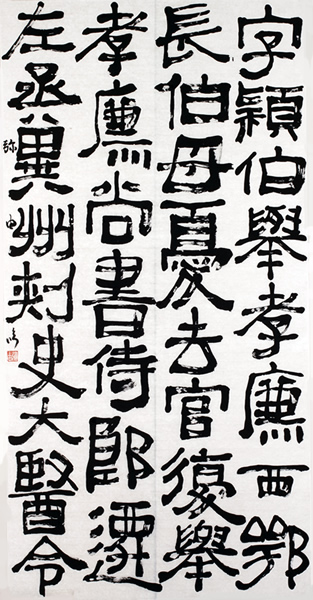 字穎伯舉孝廉西鄂
長伯母憂去官復舉
孝廉尚書侍郎遷
左丞冀州刺史大醫令
弥